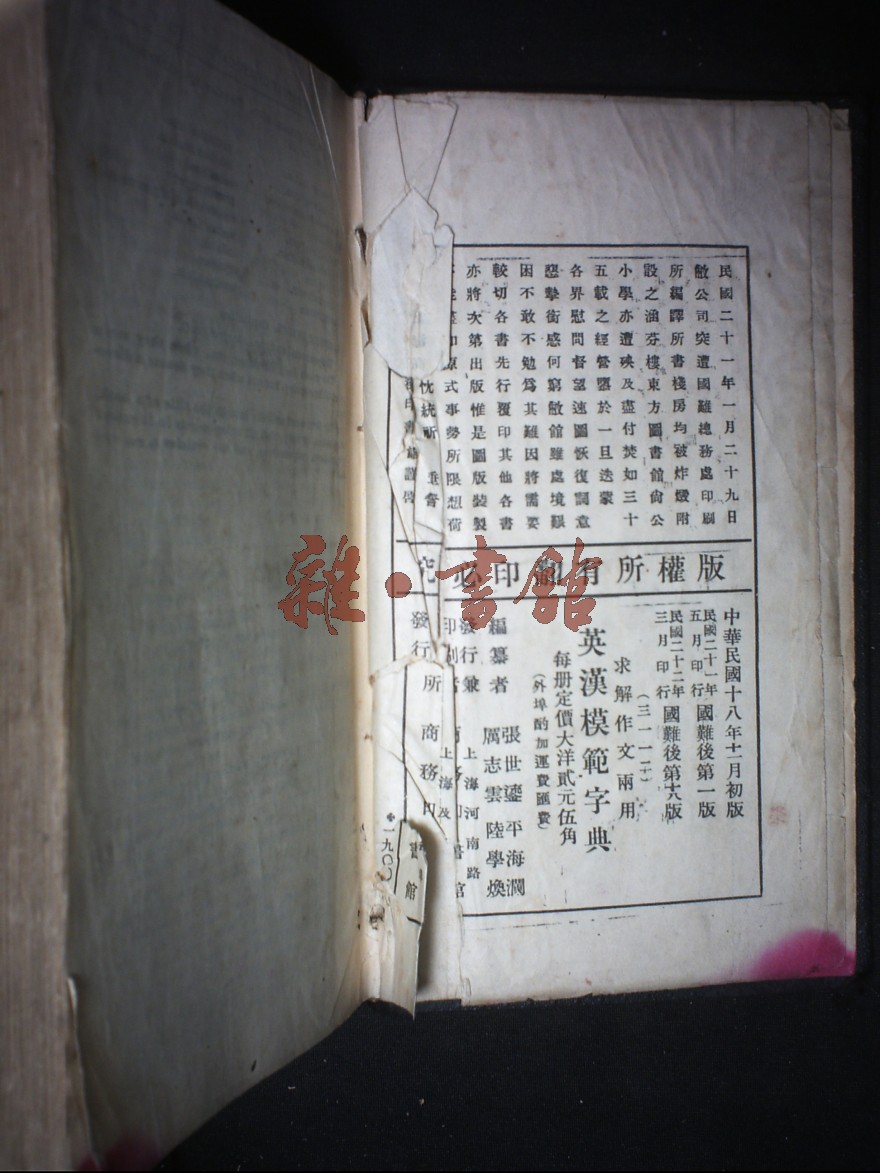 民國二十一年一月二十九日
敝公司突遭國難總務處印刷
所編譯所書棧房均被炸燬附
設之涵芬樓東方圖書館尚公
小學亦遭殃及盡付焚如三十
五載之經營隳於一旦迭蒙
各界慰問督望速圖恢復詞意
懇摯銜感何窮敝館雖處境艱
困不敢不勉爲其難因將需要
較切各書先行覆印其他各書
亦將次第出版惟是圖版裝製
如原式事勢所限想荷
忱統祈 垂詧
印書館謹啓
版權所有翻印必究
中華民國十八年十一月初版
民國二十一年五月印行國難後第一版
民國二十二年三月印行國難後第六版
(三一一一十)
求解作文兩用
英漢模範字典
每册定價大洋貳元伍角
(外埠酌加運費匯費)
編纂者 張世鎏 平海瀾
厲志雲 陸學煥
發行兼 上海河南路
印刷者 商務印書館
發行所 上海及
商務印書館
一九〇〇
雜·書館